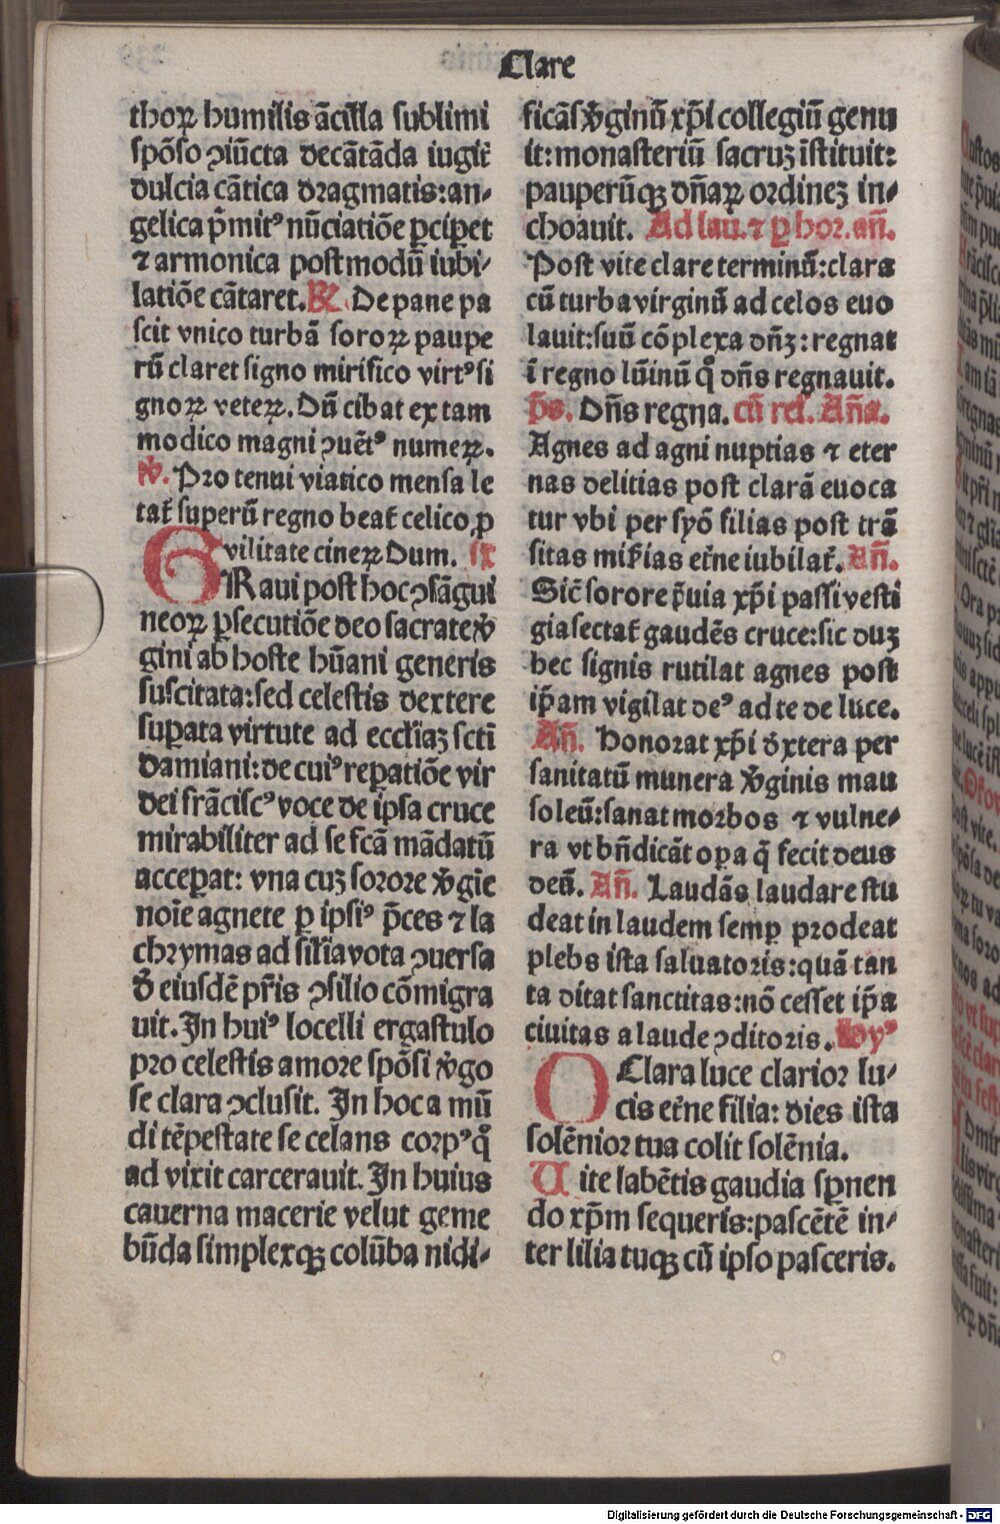 Clare
thoꝝ humilis ãcilla sublimi
spõso ꝯiũcta decãtãda iugit᷑
dulcia cãtica dragmatis: an⸗
gelica p̃mitꝰ nũciatiõe ꝑciꝑet
⁊ armonica postmodũ iubi⸗
latiõe cãtaret. ℟. De pane pa
scit vnico turbã soroꝝ paupe
rũ claret signo mirifico virtꝰ si
gnoꝝ veteꝝ. Dũ cibat ex tam
modico magni ꝯuẽtꝰ numeꝝ.
℣. Pro tenui viatico mensa le
tat᷑ superũ regno beat᷑ celico ꝓ
vilitate cineꝝ Dum. sx
GRaui post hoc ꝯsãgui
neoꝝ ꝑsecutiõe deo sacrate v̾
gini ab hoste hũani generis
suscitata: sed celestis dextere
suꝑata virtute ad eccłiaꝫ scti̅
damiani: de cuiꝰ reꝑatiõe vir
dei frãciscꝰ voce de ip̃a cruce
mirabiliter ad se fc̃ã mãdatũ
acceꝑat: vna cuꝫ sorore v̾gĩe
noĩe agnete ꝑ ipsiꝰ p̃ces ⁊ la
chrymas ad silĩa vota ꝯuersa
d̾ eiusdẽ pr̃is ꝯsilio cõmigra
uit. In huiꝰ locelli ergastulo
pro celestis amore spõsi v̾go
se clara ꝯclusit. In hoc a mũ
di tẽpestate se celans corpꝰ qͦ̃
ad vixit carcerauit. In huius
cauerna macerie velut geme
bũda simplexqꝫ colũba nidi⸗
ficãs v̾ginũ xp̃i collegiũ genu
it: monasteriũ sacruꝫ ĩstituit:
pauperũqꝫ dñaꝝ ordineꝫ in⸗
choauit. Ad lau. ⁊ ꝑ hor. añ.
Post vite clare terminũ: clara
cũ turba virginũ ad celos euo
lauit: suũ cõplexa dñꝫ: regnat
ĩ regno lũinũ qͦ dñs regnauit.
p̃s. Dñs regna. cũ rel̃. Añe.
Agnes ad agni nuptias ⁊ eter
nas delitias post clarã euoca
tur vbi per syõ filias post trã
sitas mis̃ias et̾ne iubilat᷑. Añ.
Sic̃ sorore p̃uia xp̃i passi vesti
gia sectat᷑ gaudẽs cruce: sic duꝫ
hec signis rutilat agnes post
ip̃am vigilat deꝰ ad te de luce.
Añ. Honorat xp̃i d̾xtera per
sanitatũ munera v̾ginis mau
soleũ: sanat morbos ⁊ vulne⸗
ra vt bñdicãt oꝑa q̃ fecit deus
deũ. Añ. Laudãs laudare stu
deat in laudem semꝑ prodeat
plebs ista saluatoris: quã tan
ta ditat sanctitas: nõ cesset ip̃a
ciuitas a laude ꝯditoris. hyꝰ
O Clara luce clarior lu⸗
cis et̾ne filia: dies ista
solẽnior tua colit solẽnia.
Uite labẽtis gaudia sꝑnen
do xp̃m sequeris: pascẽtẽ in⸗
ter lilia tuqꝫ cũ ipso pasceris.
Digitalisierung gefördert durch die Deutsche Forschungsgemeinschaft - DFG